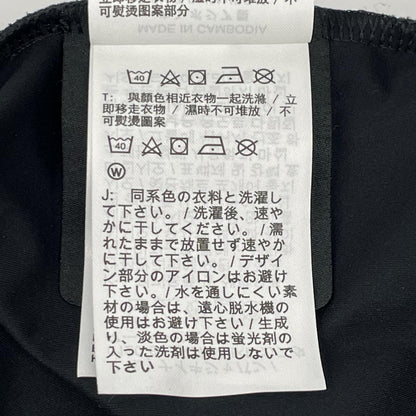 立即移走衣物/濕時不可堆放/不
可熨燙图案部分
MADE IN CAMBODIA
40
T: 與顏色相近衣物一起洗滌 / 立
即移走衣物 / 濕時不可堆放 / 不
可熨燙圖案
40
W
J: 同系色の衣料と洗濯し
て下さい。/ 洗濯後、速や
かに干してください。/ 濡
れたままで放置せず速やか
に干して下さい。/ デザイ
ン部分のアイロンはお避け
下さい。/ 水を通しにくい素
材の場合は、遠心脱水機の
使用はお避け下さい / 生成
り、淡色の場合は蛍光剤の
入った洗剤は使用しないで
下さい